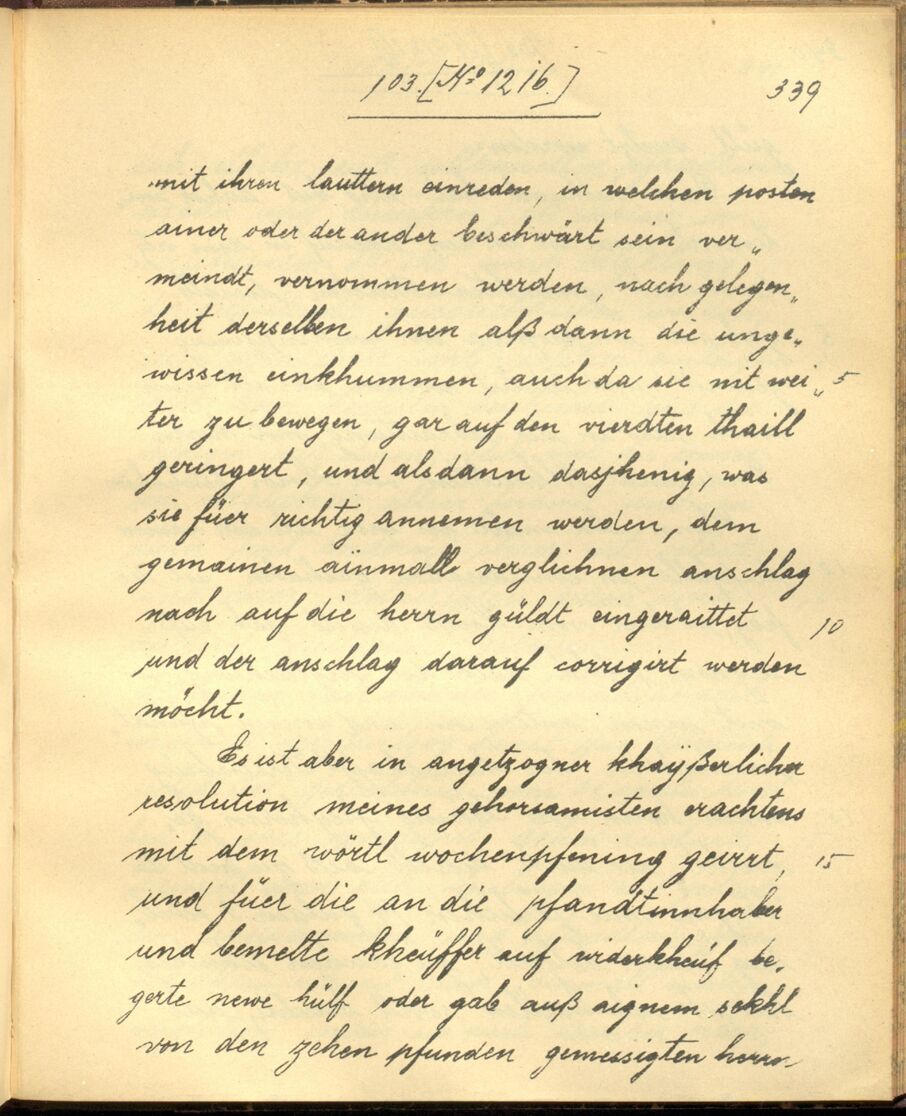 103. [No 1216.]
339
mit ihren lauttern einreden, in welchen posten
ainer oder der ander beschwärt sein ver„
meindt, vernommen werden, nach gelegen„
heit derselben ihnen alß dann die unge„
wissen einkhummen, auch da sie nit wei„ 5
ter zu bewegen, gar auf den vierdten thaill
geringert, und alsdann dasjhenig, was
sie füer richtig annemen werden, dem
gemainen äinmall verglichnen anschlag
nach auf die herrn güldt eingeraittet 10
und der anschlag darauf corrigirt werden
möcht.
Es ist aber in angetzogner khaÿßerlicher
resolution meines gehorsamisten erachtens
mit dem wörtl wochenpfening geirrt, 15
und füer die an die pfandtinnhaber
und bemelte kheüffer auf widerkheüf be„
gerte newe hülf oder gab auß aignem sekhl
von den zehen pfunden gemessigten herrn